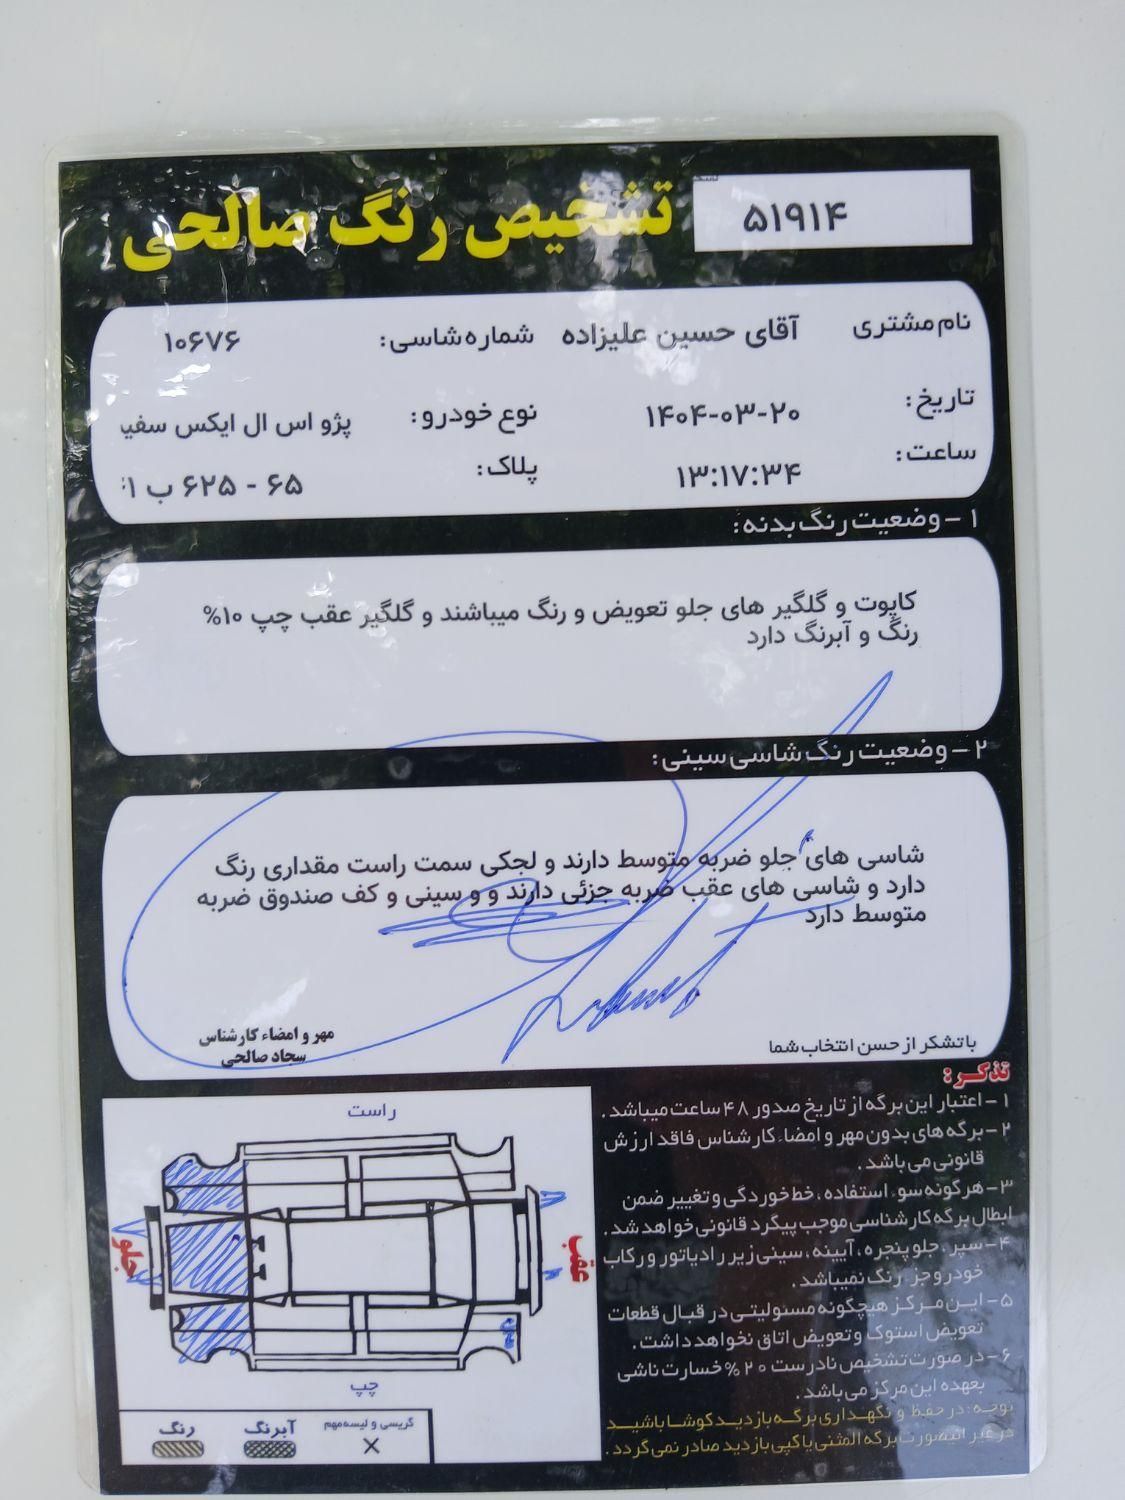 تشخیص رنگ صالحی
۵۱۹۱۴
نام مشتری آقای حسین علیزاده شماره شاسی: ۱۰۶۷۶
تاریخ: ۱۴۰۴-۰۳-۲۰ نوع خودرو: پژو اس ال ایکس سفید
ساعت: ۱۳:۱۷:۳۴ پلاک: ۶۵ - ۶۲۵ ب
۱ - وضعیت رنگ بدنه:
کاپوت و گلگیر های جلو تعویض و رنگ میباشند و گلگیر عقب چپ ۱۰%
رنگ و آبرنگ دارد
۲ - وضعیت رنگ شاسی سینی:
شاسی های جلو ضربه متوسط دارند و لجکی سمت راست مقداری رنگ
دارد و شاسی های عقب ضربه جزئی دارند و و سینی و کف صندوق ضربه
متوسط دارد
مهر و امضاء کارشناس
سجاد صالحی
باتشکر از حسن انتخاب شما
تذکر:
۱ - اعتبار این برگه از تاریخ صدور ۴۸ ساعت میباشد.
۲ - برگه های بدون مهر و امضاء کارشناس فاقد ارزش
قانونی می باشد.
۳ - هرگونه سوء استفاده، خط خوردگی و تغییر ضمن
ابطال برگه کارشناسی موجب پیگرد قانونی خواهد شد.
۴ - سپر، جلو پنجره، آیینه، سینی زیر رادیاتور و رکاب
خودرو جزء رنگ نمیباشد.
۵ - این مرکز هیچگونه مسئولیتی در قبال قطعات
تعویض استوک و تعویض اتاق نخواهد داشت.
۶ - در صورت تشخیص نادرست ۲۰% خسارت ناشی
بعهده این مرکز می باشد.
توجه: در حفظ و نگهداری برگه بازدید کوشا باشید
در غیر اینصورت برگه المثنی یا کپی بازدید صادر نمی گردد.
راست
جلو
عقب
چپ
گریسی و لیسه مهم
آبرنگ
رنگ